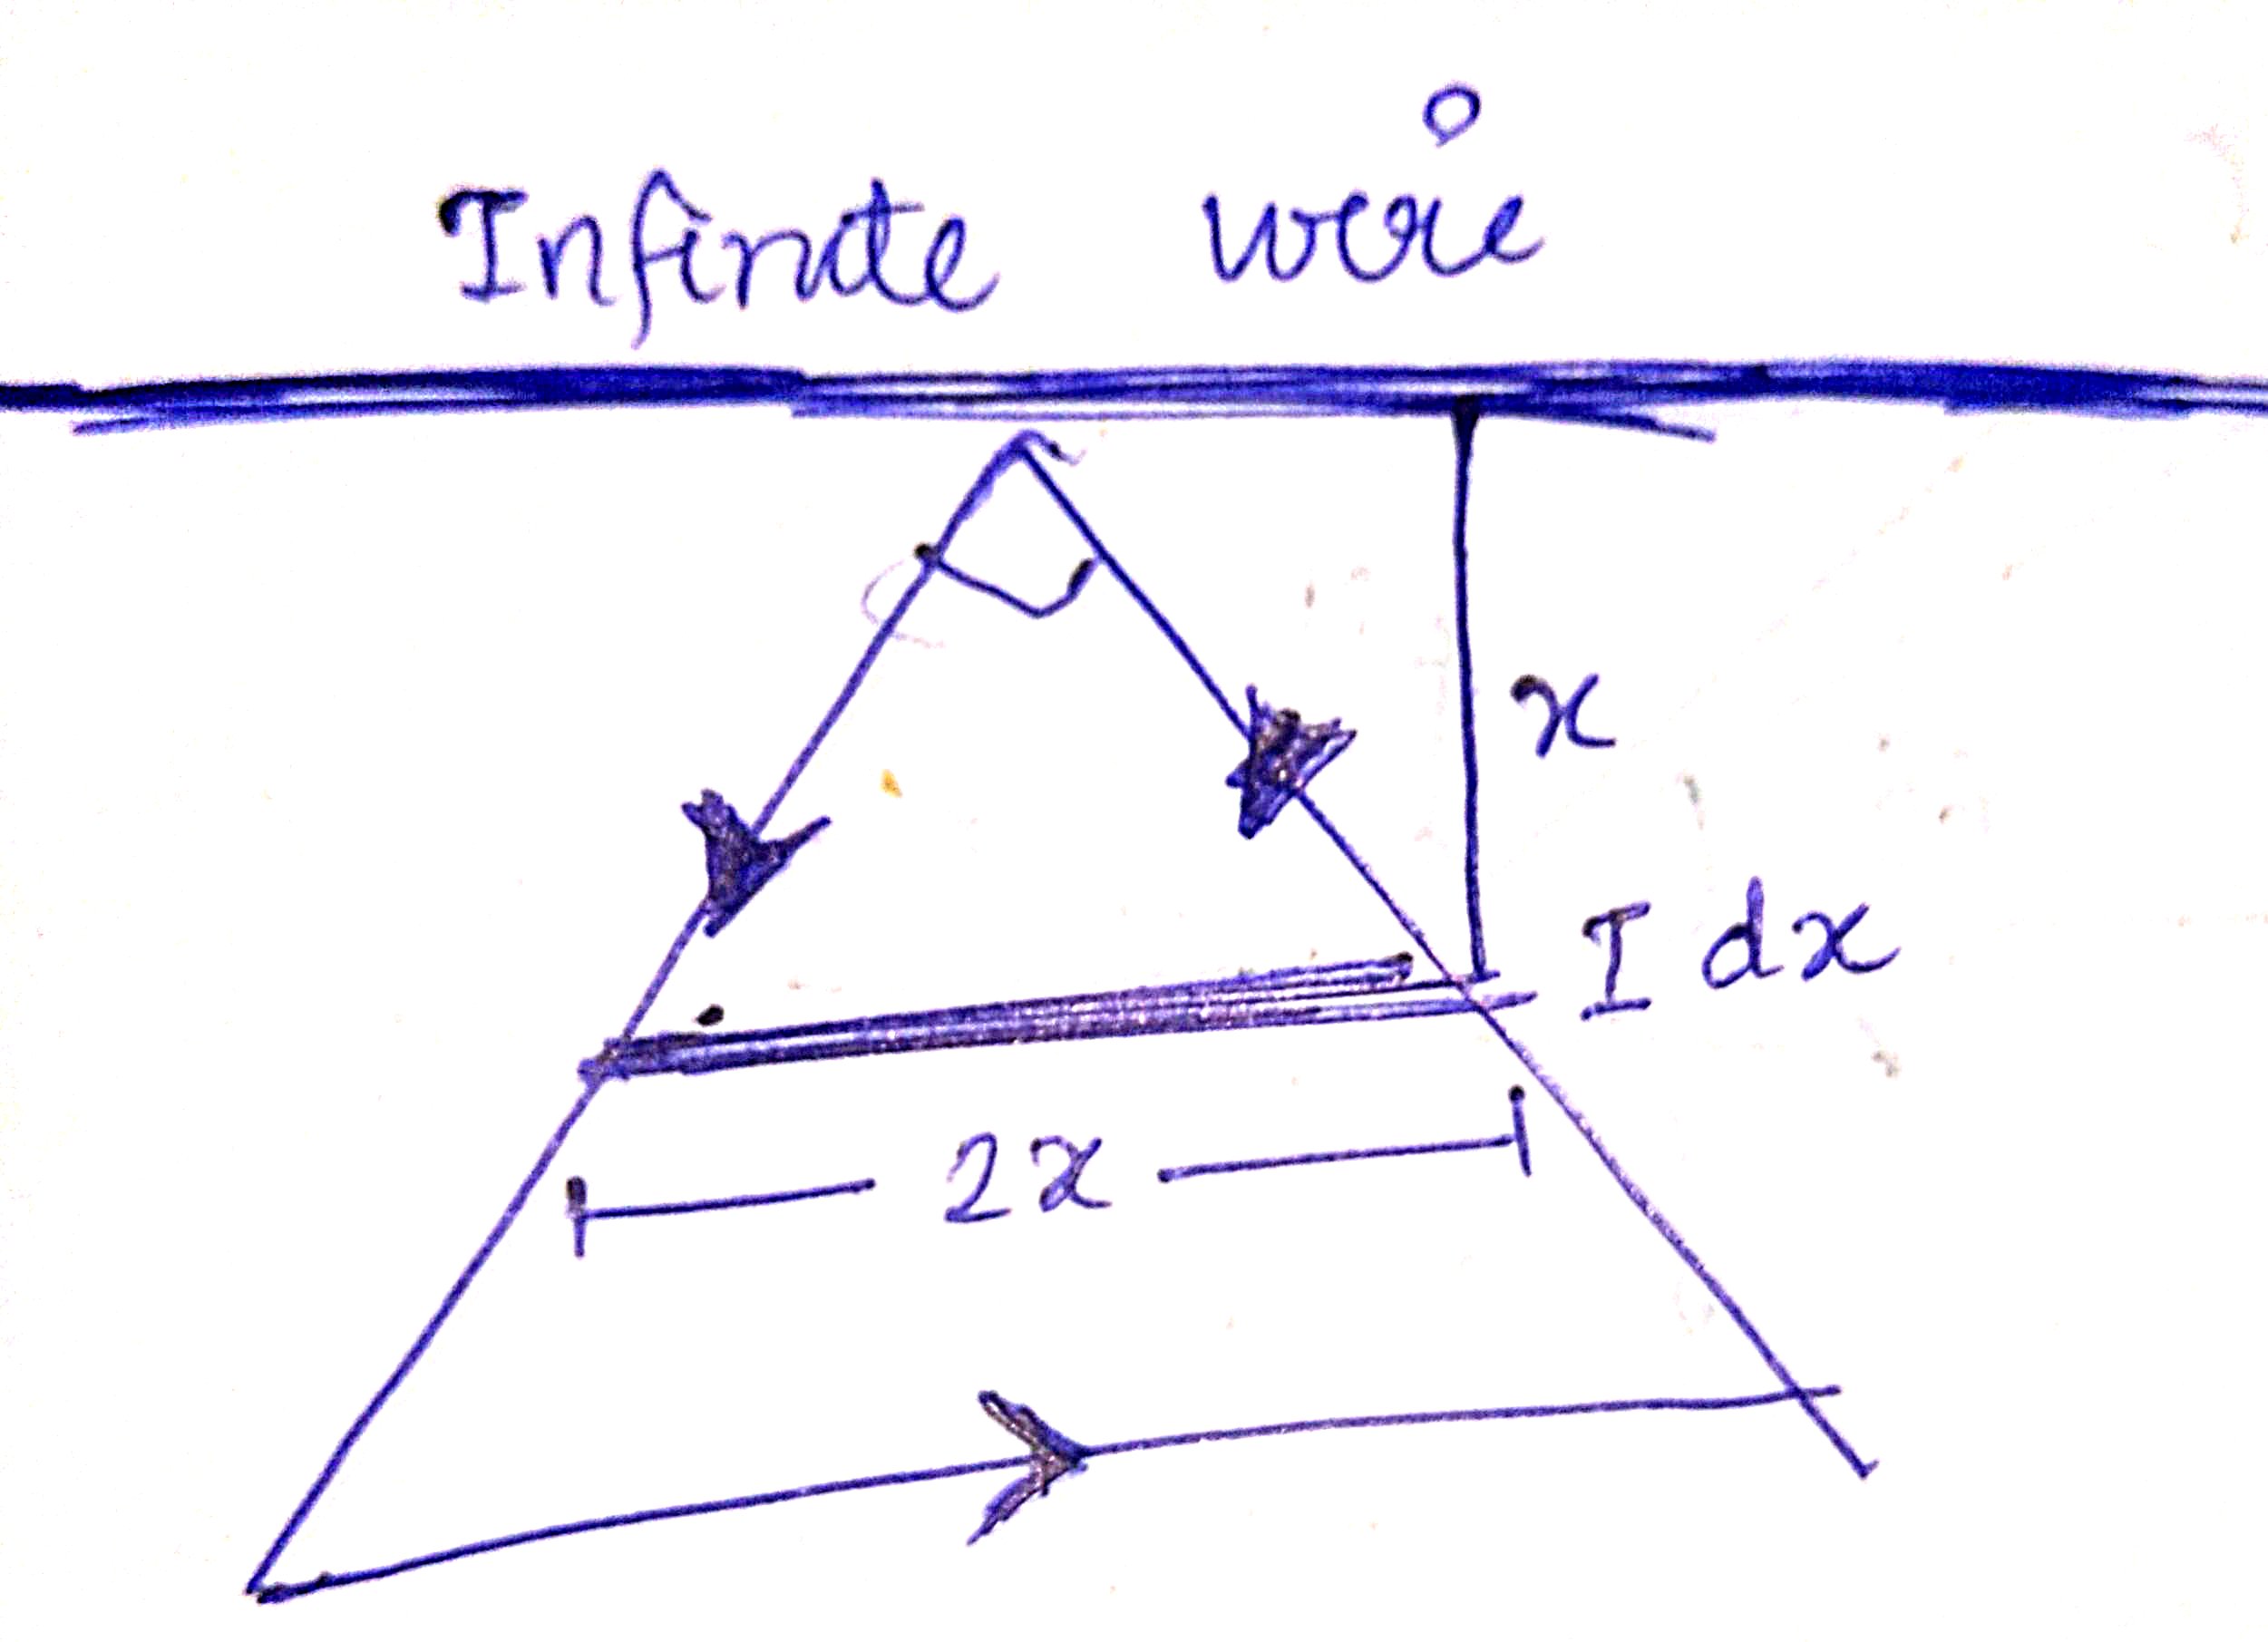 Infinite wire
x
I dx
2x